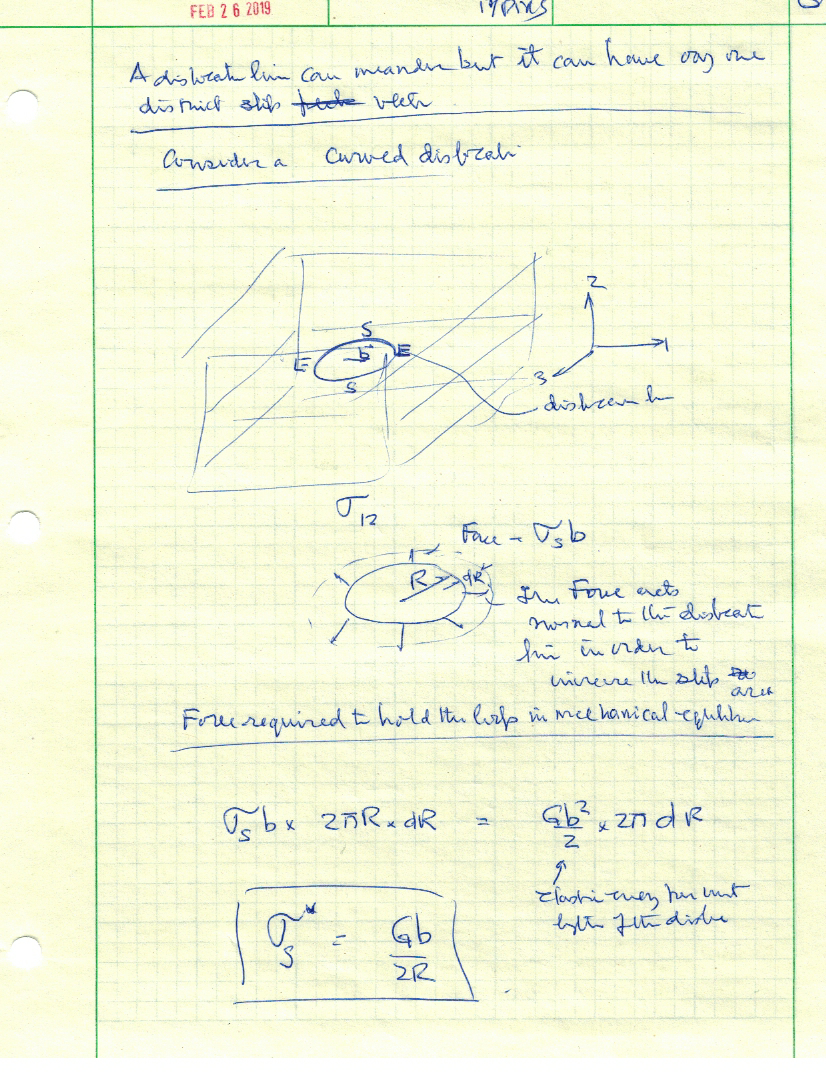 FEB 26 2019
A dislocat line can meander but it can have only one
distinct slip vector
Consider a Curved dislocati
2
S
b E
E
S
1
3
dislocation line
σ12
Force = σs b
R dR
The Force acts
normal to the dislocat
line in order to
increase the slip
area
Force required to hold the loops in mechanical equilibrium
σs b × 2πR × dR = Gb²/2 × 2π dR
Elastic energy per unit
length of the disloc
σs* = Gb/2R